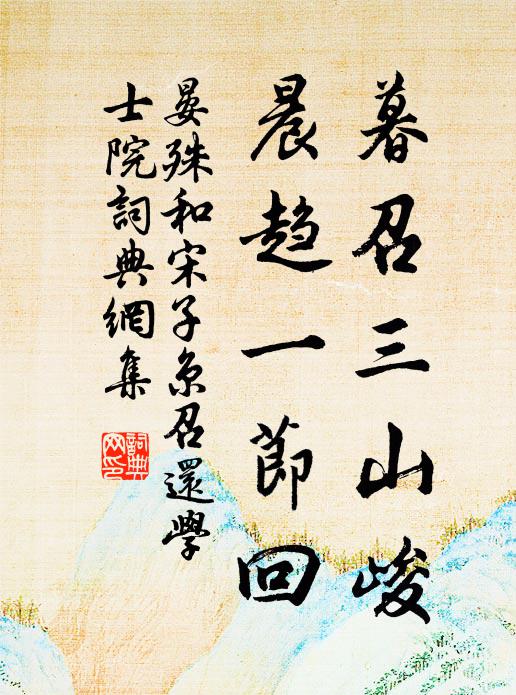 暮召三山峻
晨趋一節回
晏殊和宋子京召還學
士院詞典網集
詞典網印